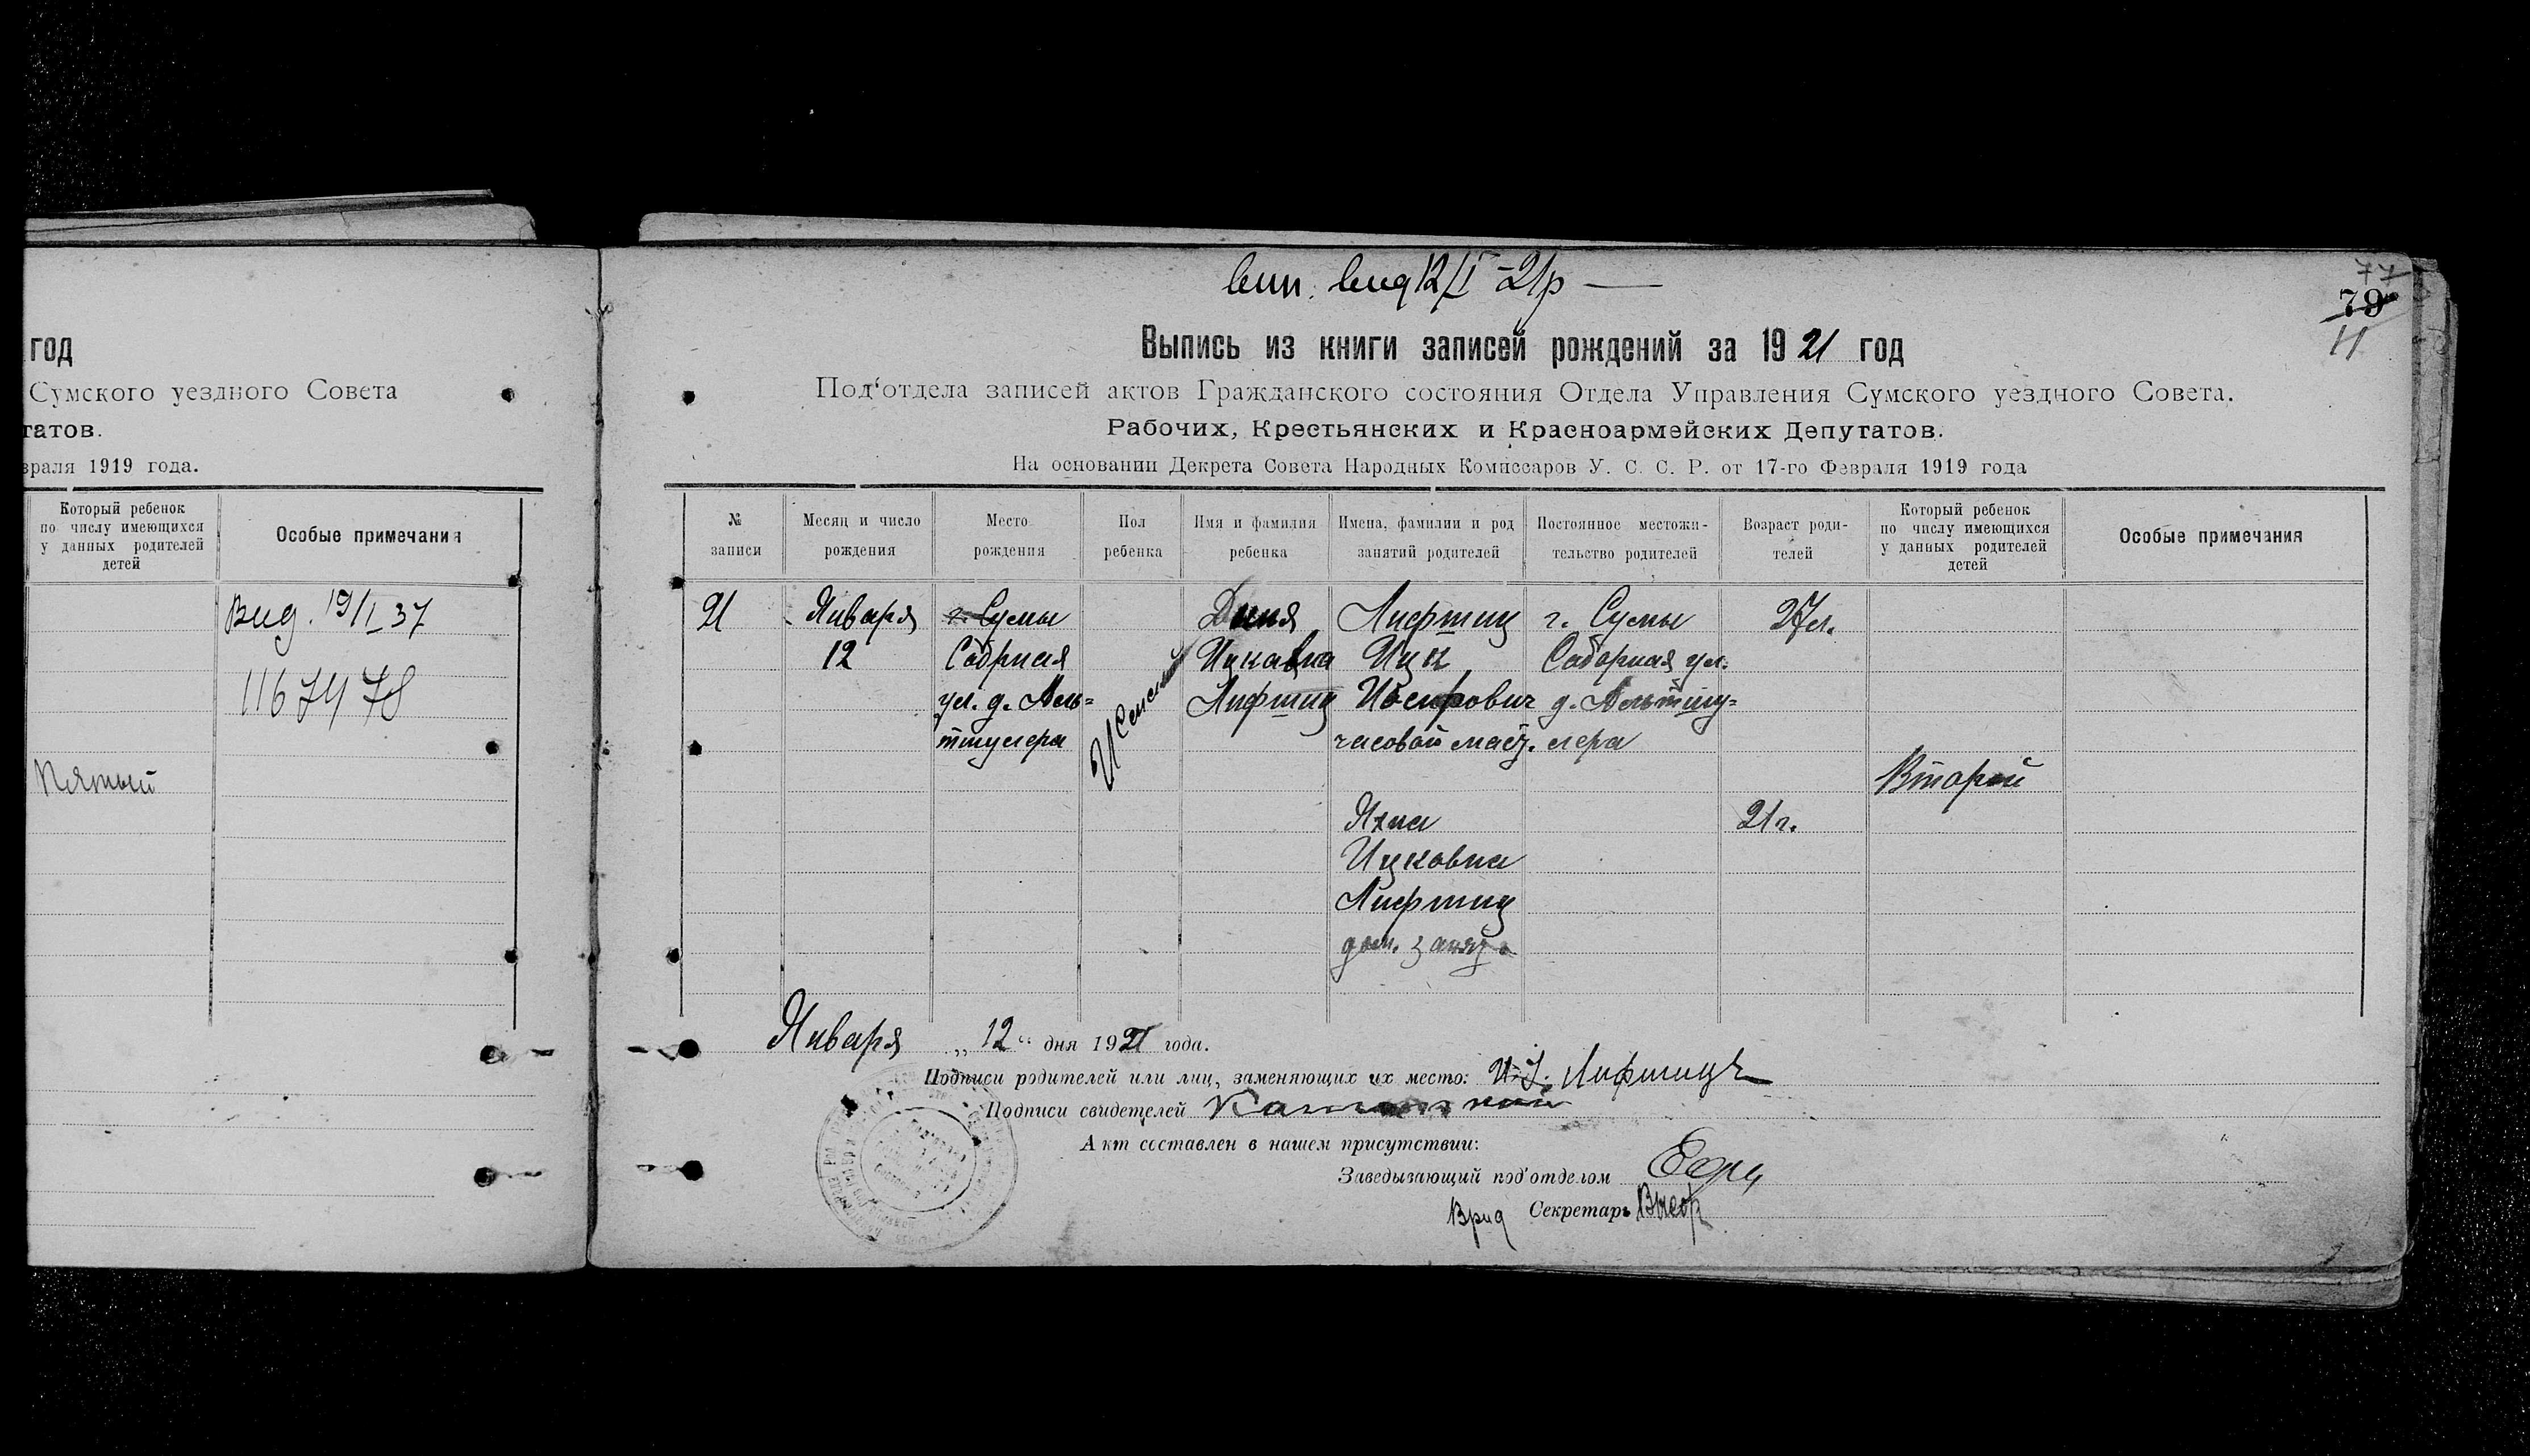 год
Сумского уездного Совета
татов.
враля 1919 года.
Который ребенок
по числу имеющихся
у данных родителей
детей
Особые примечания
Вид. 19/I 37
1167478
Пятый
вип. вид 12/I -21р
77
79
11
Выпись из книги записей рождений за 1921 год
Под‘отдела записей актов Гражданского состояния Отдела Управления Сумского уездного Совета.
Рабочих, Крестьянских и Красноармейских Депутатов.
На основании Декрета Совета Народных Комиссаров У. С. С. Р. от 17-го Февраля 1919 года
№
записи
Месяц и число
рождения
Место
рождения
Пол
ребенка
Имя и фамилия
ребенка
Имена, фамилии и род
занятий родителей
Постоянное местожи-
тельство родителей
Возраст роди-
телей
Который ребенок
по числу имеющихся
у данных родителей
детей
Особые примечания
21
Января
12
г. Сумы
Собрная
ул. д. Аль-
тшулера
Женский
Ицкавна
Лифшиц
Лифшиц
Ицк
Иосифович
часовой маст.
г. Сумы
Саборная ул.
д. Альтшу-
лера
27 л.
Второй
Ицковна
Лифшиц
дом. занят.
21 г.
Января „12“ дня 1921 года.
Подписи родителей или лиц, заменяющих их место: Лифшицъ
Подписи свидетелей
Акт составлен в нашем присутствии:
Заведывающий под‘отделом
Врид Секретарь